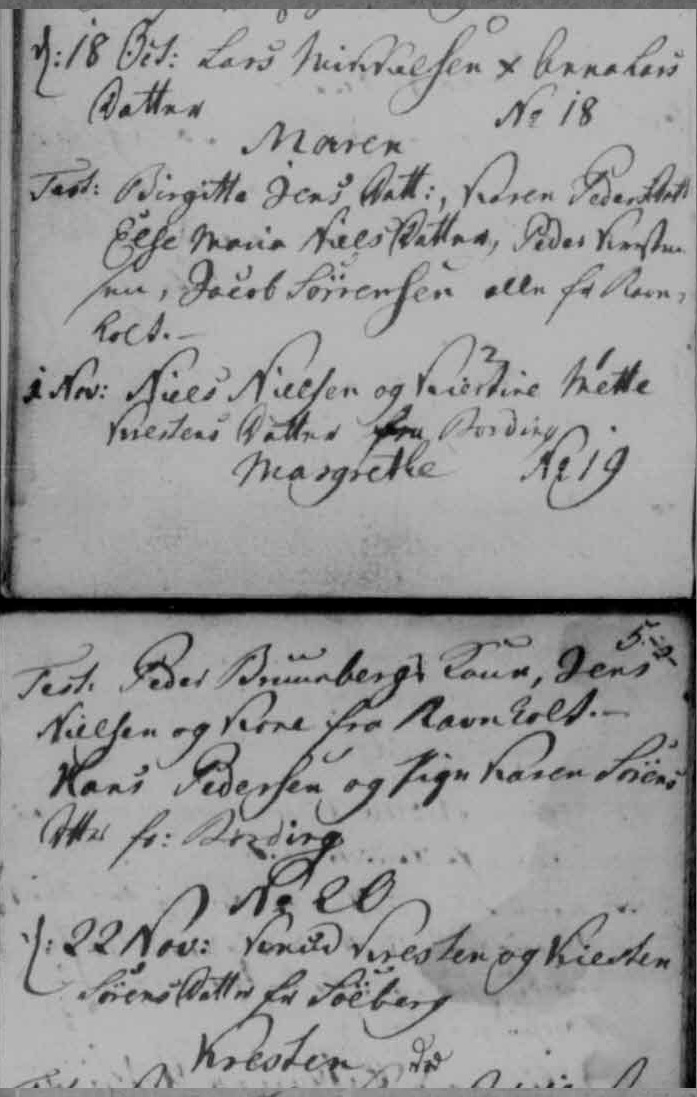 d: 18 Oct: Lars Mikkelsen & Anna Lars
Datter No 18
Maren
Test: Birgitte Jens Datt:, Karen Peders Datt
Else Maria Niels Datter, Peder Kresten
sen, Jacob Sörrensen alle fr Ravn,
holt.—
1 Nov: Niels Nielsen og Kiestine Mette
Krestens Datter fra Bording
Margrethe No 19
Test: Peder Bruunbergs Kone, Jens
Nielsen og Kone fra Ravnholt.—
Hans Pedersen og Pigen Karen Sörens
Dtter fr: Bording
No 20
d: 22 Nov: Knud Kresten og Kiesten
Sörens Datter fr Söeberg
Kresten